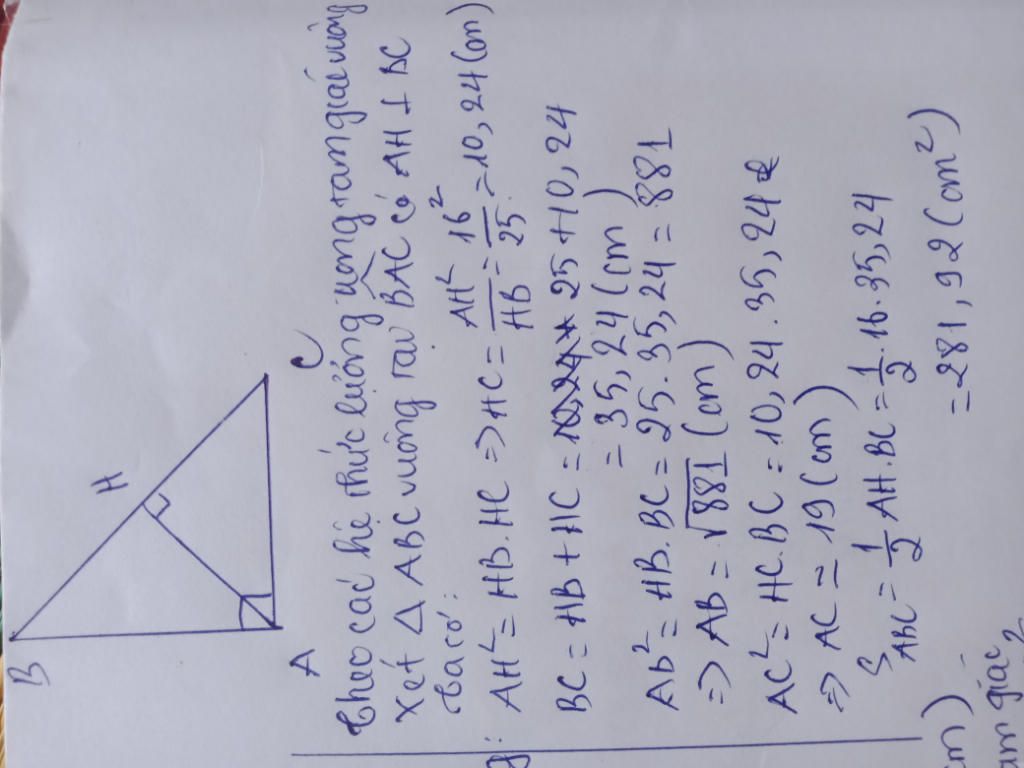 B
H
A
C
theo các hệ thức lượng trong tam giác vuông
Xét Δ ABC vuông tại BAC có AH ⊥ BC
ta có:
AH² = HB.HC => HC = AH²/HB = 16²/25 = 10,24 (cm)
BC = HB + HC = 25 + 10,24
= 35,24 (cm)
Ab² = HB.BC = 25.35,24 = 881
=> AB = √881 (cm)
AC² = HC.BC = 10,24.35,24
=> AC = 19 (cm)
S ABC = 1/2 AH.BC = 1/2 .16.35,24
= 281,92 (cm²)
m)
am giác